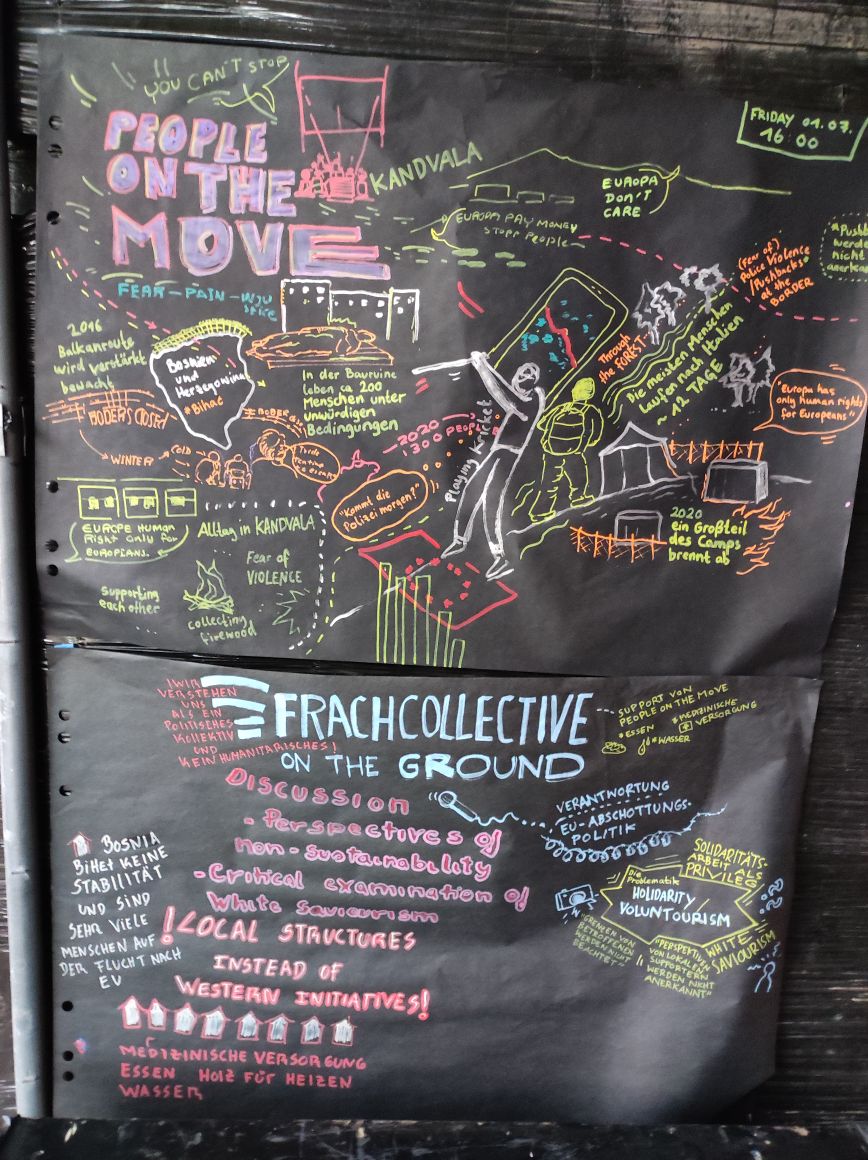 YOU CAN'T STOP
PEOPLE
ON THE
MOVE
KANDVALA
FRIDAY 01.07.
16:00
EUROPA
DON'T
CARE
EUROPA PAY MONEY
STOPP PEOPLE
(Fear of)
Police Violence
/Pushbacks
at the
BORDER
werden
nicht
FEAR - PAIN -
2016
Balkanroute
wird verstärkt
bewacht
Bosnien
und
Herzegowina
Bihać
In der Bauruine
leben ca 200
Menschen unter
unwürdigen
Bedingungen
BODERS CLOSED
WINTER
COLD
2020
1300 PEOPLE
Playing Kricket
"Kommt die
Polizei morgen?"
Through
the FOREST
Die meisten Menschen
laufen nach Italien
~ 12 TAGE
"Europa has
only human rights
for Europeans"
2020
ein Großteil
des Camps
brennt ab
EUROPE HUMAN
Right only for
EUROPIANS.
Alltag in KANDVALA
Fear of
VIOLENCE
supporting
each other
collecting
firewood
WIR
VERSTEHEN
UNS
ALS EIN
POLITISCHES
KOLLEKTIV
UND
KEIN HUMANITARISCHES!
FRACHCOLLECTIVE
ON THE GROUND
SUPPORT VON
PEOPLE ON THE MOVE
*ESSEN *MEDIZINISCHE
VERSORGUNG
*WASSER
DISCUSSION
- Perspectives of
non-sustainability
- Critical examination of
White Saviourism
VERANTWORTUNG
EU-ABSCHOTTUNGS-
POLITIK
BOSNIA
BIHAĆ KEINE
STABILITÄT
UND SIND
SEHR VIELE
MENSCHEN AUF
DER FLUCHT NACH
EU
!LOCAL STRUCTURES
INSTEAD OF
WESTERN INITIATIVES!
SOLIDARITÄTS-
ARBEIT ALS
PRIVILEG
Die
Problematik
HOLIDARITY/
VOLUNTOURISM
WHITE
SAVIOURISM
"GRENZEN VON
BETROFFENEN
WERDEN NICHT
BEACHTET"
"PERSPEKTIVEN
VON LOKALEN
SUPPORTERN
WERDEN NICHT
ANERKANNT"
MEDIZINISCHE VERSORGUNG
ESSEN HOLZ FÜR HEIZEN
WASSER